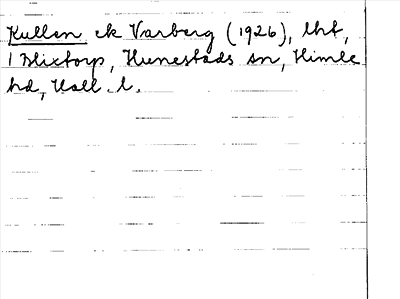 Kullen ek Varberg (1926), lht,
1 Blixtorp, Hunestads sn, Himle
hd, Hall. l.